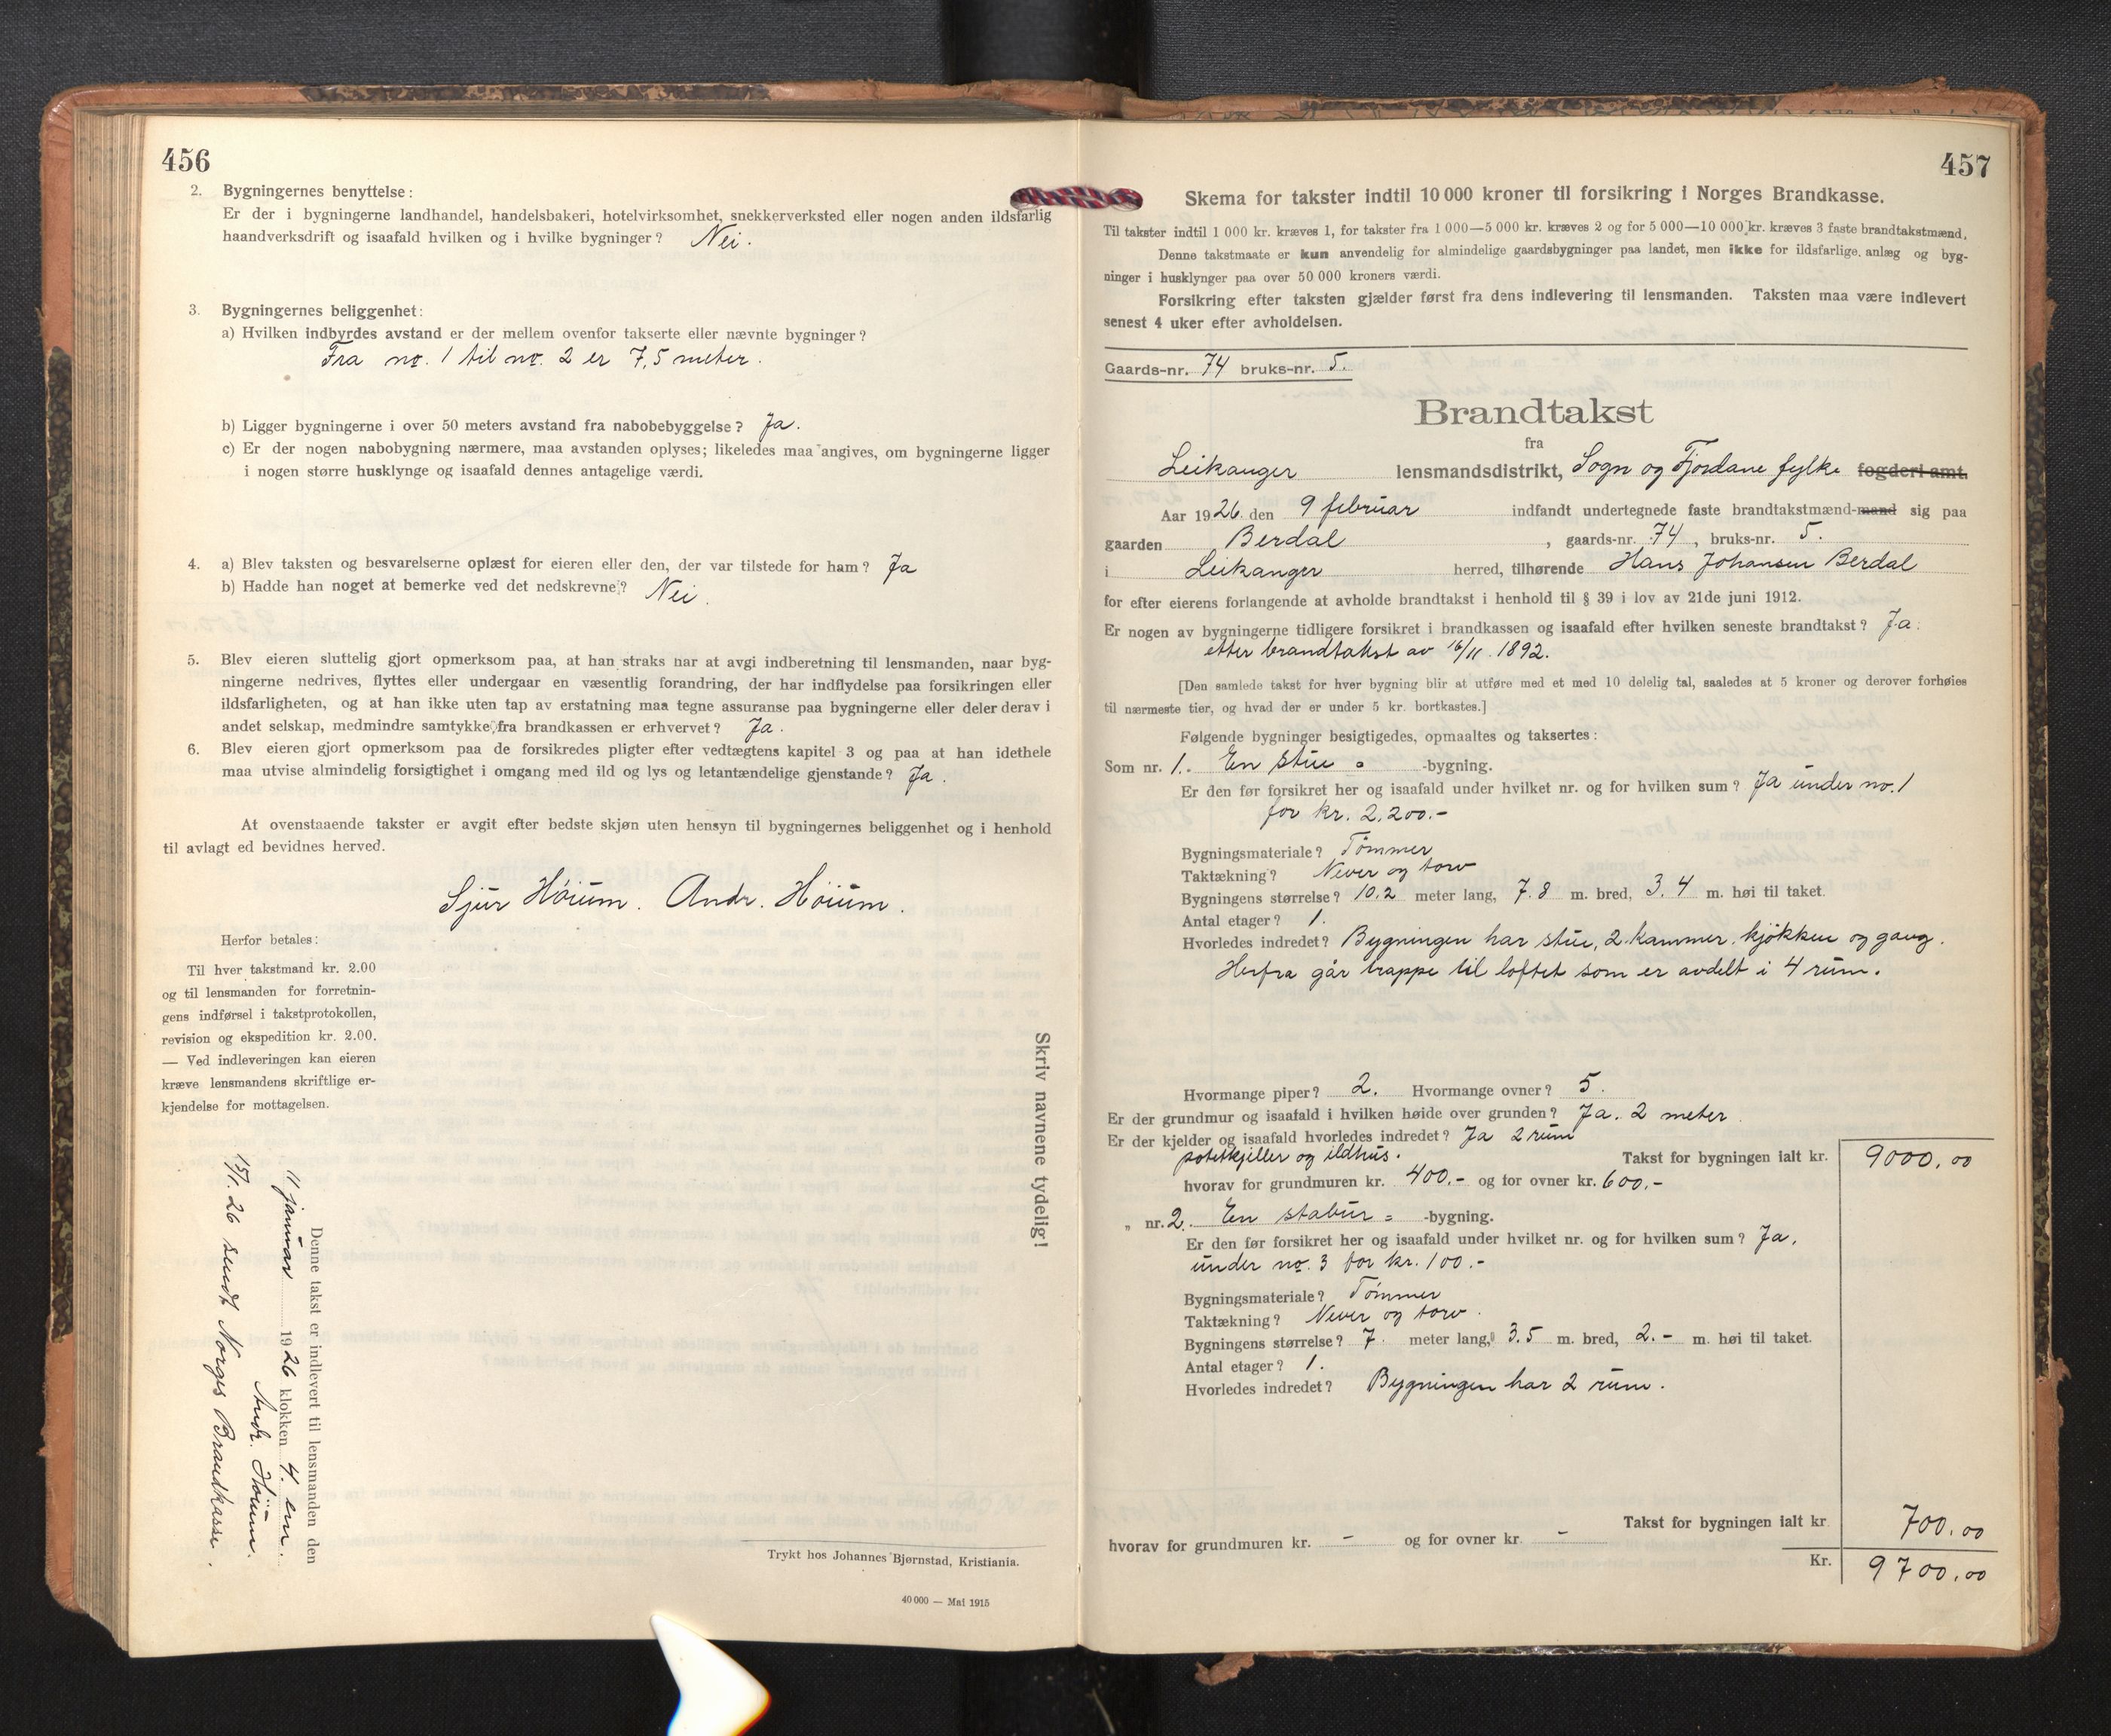 456
2. Bygningernes benyttelse:
Er der i bygningerne landhandel, handelsbakeri, hotelvirksomhet, snekkerverksted eller nogen anden ildsfarlig
haandverksdrift og isaafald hvilken og i hvilke bygninger? Nei.
3. Bygningernes beliggenhet:
a) Hvilken indbyrdes avstand er der mellem ovenfor takserte eller nævnte bygninger?
Fra no. 1 til no. 2 er 7,5 meter.
b) Ligger bygningerne i over 50 meters avstand fra nabobebyggelse? Ja.
c) Er der nogen nabobygning nærmere, maa avstanden oplyses; likeledes maa angives, om bygningerne ligger
i nogen større husklynge og isaafald dennes antagelige værdi.
4. a) Blev taksten og besvarelserne oplæst for eieren eller den, der var tilstede for ham? Ja
b) Hadde han noget at bemerke ved det nedskrevne? Nei.
5. Blev eieren sluttelig gjort opmerksom paa, at han straks har at avgi indberetning til lensmanden, naar byg-
ningerne nedrives, flyttes eller undergaar en væsentlig forandring, der har indflydelse paa forsikringen eller
ildsfarligheten, og at han ikke uten tap av erstatning maa tegne assuranse paa bygningerne eller deler derav i
andet selskap, medmindre samtykke fra brandkassen er erhvervet? Ja.
6. Blev eieren gjort opmerksom paa de forsikredes pligter efter vedtægtens kapitel 3 og paa at han idethele
maa utvise almindelig forsigtighet i omgang med ild og lys og letantændelige gjenstande? Ja.
At ovenstaaende takster er avgit efter bedste skjøn uten hensyn til bygningernes beliggenhet og i henhold
til avlagt ed bevidnes herved.
Sjur Höium. Andr. Höium.
Herfor betales:
Til hver takstmand kr. 2.00
og til lensmanden for forretnin-
gens indførsel i takstprotokollen,
revision og ekspedition kr. 2.00.
— Ved indleveringen kan eieren
kræve lensmandens skriftlige er-
kjendelse for mottagelsen.
Skriv navnene tydelig!
Denne takst er indlevert til lensmanden den
11 januar 1926 klokken 4. em.
Andr. Höium.
15/1. 26 sendt Norges Brandkasse.
Trykt hos Johannes Bjørnstad, Kristiania.
40 000 — Mai 1915
457
Skema for takster indtil 10 000 kroner til forsikring i Norges Brandkasse.
Til takster indtil 1 000 kr. kræves 1, for takster fra 1 000—5 000 kr. kræves 2 og for 5 000—10 000 kr. kræves 3 faste brandtakstmænd.
Denne takstmaate er kun anvendelig for almindelige gaardsbygninger paa landet, men ikke for ildsfarlige anlæg og byg-
ninger i husklynger paa over 50 000 kroners værdi.
Forsikring efter taksten gjælder først fra dens indlevering til lensmanden. Taksten maa være indlevert
senest 4 uker efter avholdelsen.
Gaards-nr. 74 bruks-nr. 5.
Brandtakst
fra
Leikanger lensmandsdistrikt, Sogn og Fjordane fylke fogderi amt.
Aar 1926 den 9 februar indfandt undertegnede faste brandtakstmænd-mand sig paa
gaarden Berdal, gaards-nr. 74, bruks-nr. 5.
i Leikanger herred, tilhørende Hans Johansen Berdal
for efter eierens forlangende at avholde brandtakst i henhold til § 39 i lov av 21de juni 1912.
Er nogen av bygningerne tidligere forsikret i brandkassen og isaafald efter hvilken seneste brandtakst? Ja.
etter brandtakst av 16/11. 1892.
[Den samlede takst for hver bygning blir at utføre med et med 10 delelig tal, saaledes at 5 kroner og derover forhøies
til nærmeste tier, og hvad der er under 5 kr. bortkastes.]
Følgende bygninger besigtigedes, opmaaltes og taksertes:
Som nr. 1. En stue = -bygning.
Er den før forsikret her og isaafald under hvilket nr. og for hvilken sum? Ja under no. 1
for kr. 2.200.-
Bygningsmateriale? Tömmer
Taktækning? Never og torv
Bygningens størrelse? 10.2 meter lang, 7.8 m. bred, 3.4 m. høi til taket.
Antal etager? 1.
Hvorledes indredet? Bygningen har stue, 2. kammer. kjökken og gang.
Herfra går trappe til loftet som er avdelt i 4 rum.
Hvormange piper? 2. Hvormange ovner? 5.
Er der grundmur og isaafald i hvilken høide over grunden? Ja. 2 meter.
Er der kjelder og isaafald hvorledes indredet? Ja 2 rum
potetkjeller og ildhus.
Takst for bygningen ialt kr. 9000.00
hvorav for grundmuren kr. 400.- og for ovner kr. 600.-
„ nr. 2. En stabur = -bygning.
Er den før forsikret her og isaafald under hvilket nr. og for hvilken sum? Ja,
under no. 3 for kr. 100.-
Bygningsmateriale? Tömmer
Taktækning? Never og torv.
Bygningens størrelse? 7. meter lang, 3.5 m. bred, 2.- m. høi til taket.
Antal etager? 1.
Hvorledes indredet? Bygningen har 2 rum.
Takst for bygningen ialt kr 700.00
hvorav for grundmuren kr. - og for ovner kr. -
Kr. 9700.00